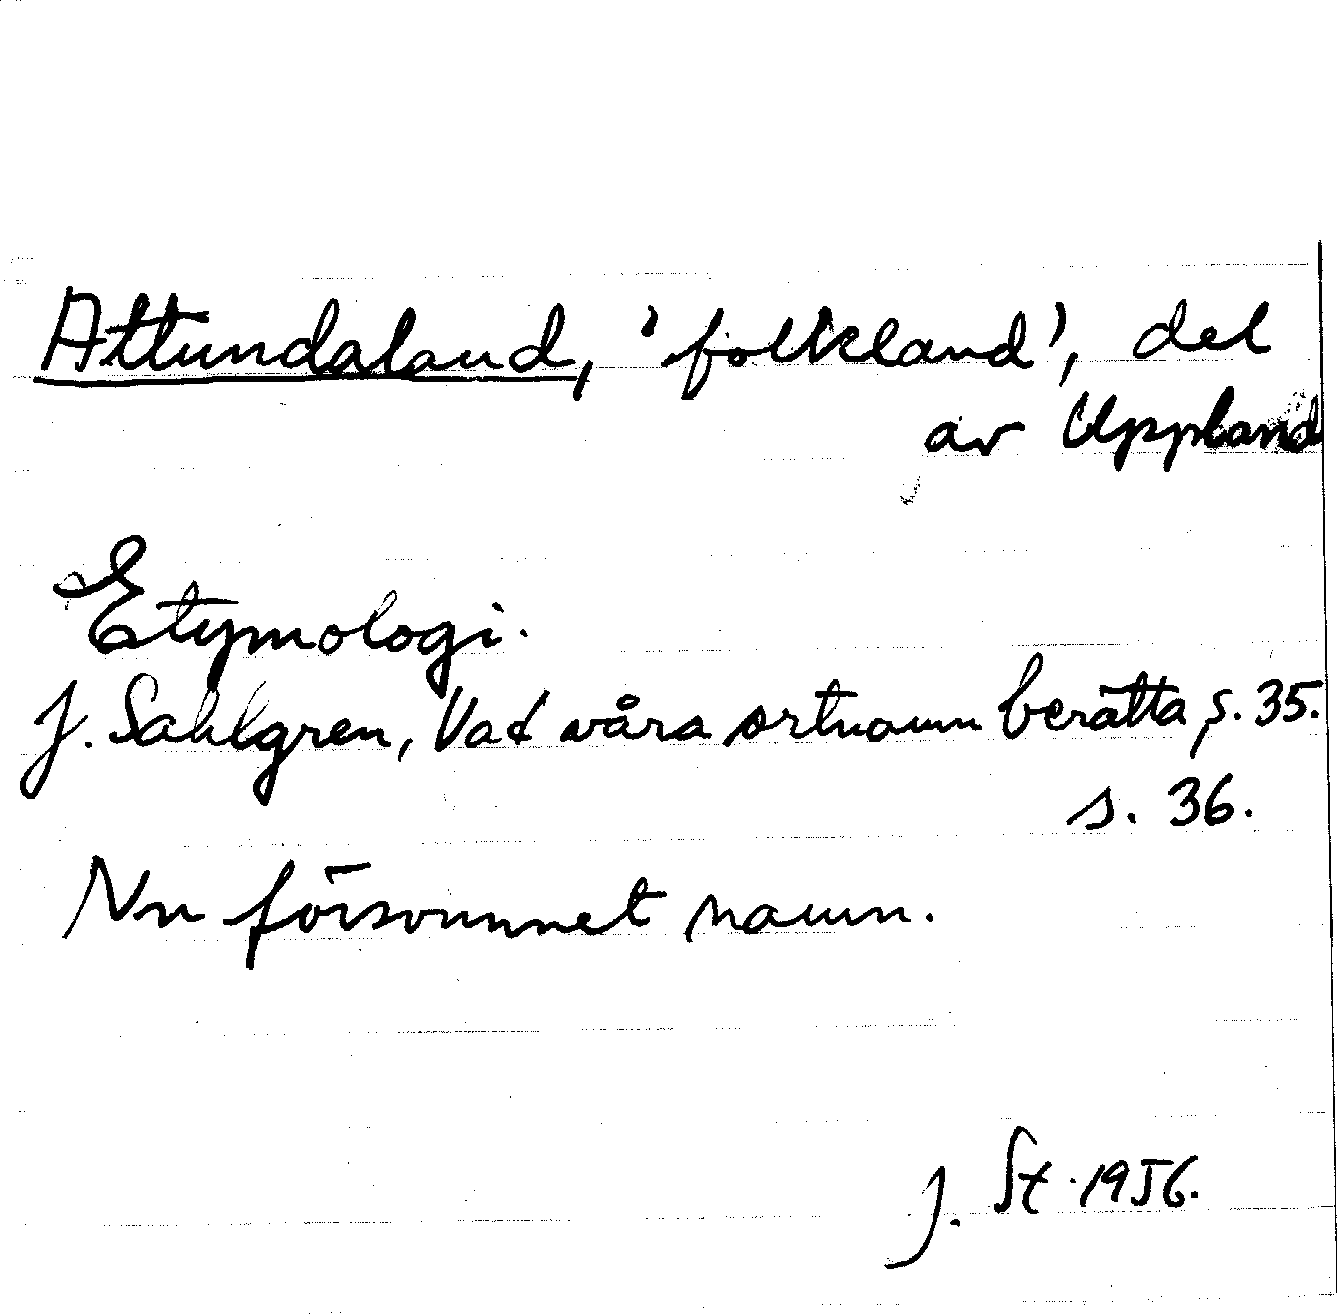 Attundaland, 'folkland', del
av Uppland
Etymologi.
J. Sahlgren, Vad våra ortnamn berätta, s. 35.
s. 36.
Nu försvunnet namn.
J. St. 1956.